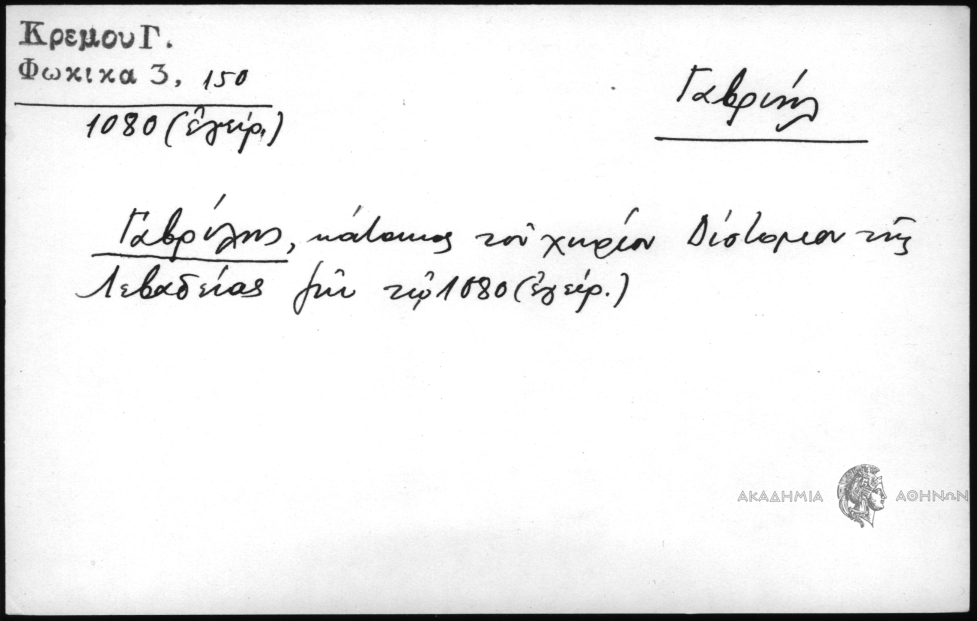 Κρεμου Γ.
Φωκικα 3, 150
1080 (ἐγείρ.)
Γαβριήλ
Γαβρίλης, κάτοικος τοῦ χωρίου Δίστομον τῆς
Λεβαδείας ζῆν τῷ 1080 (ἐγείρ.)
ΑΚΑΔΗΜΙΑ ΑΘΗΝΩΝ